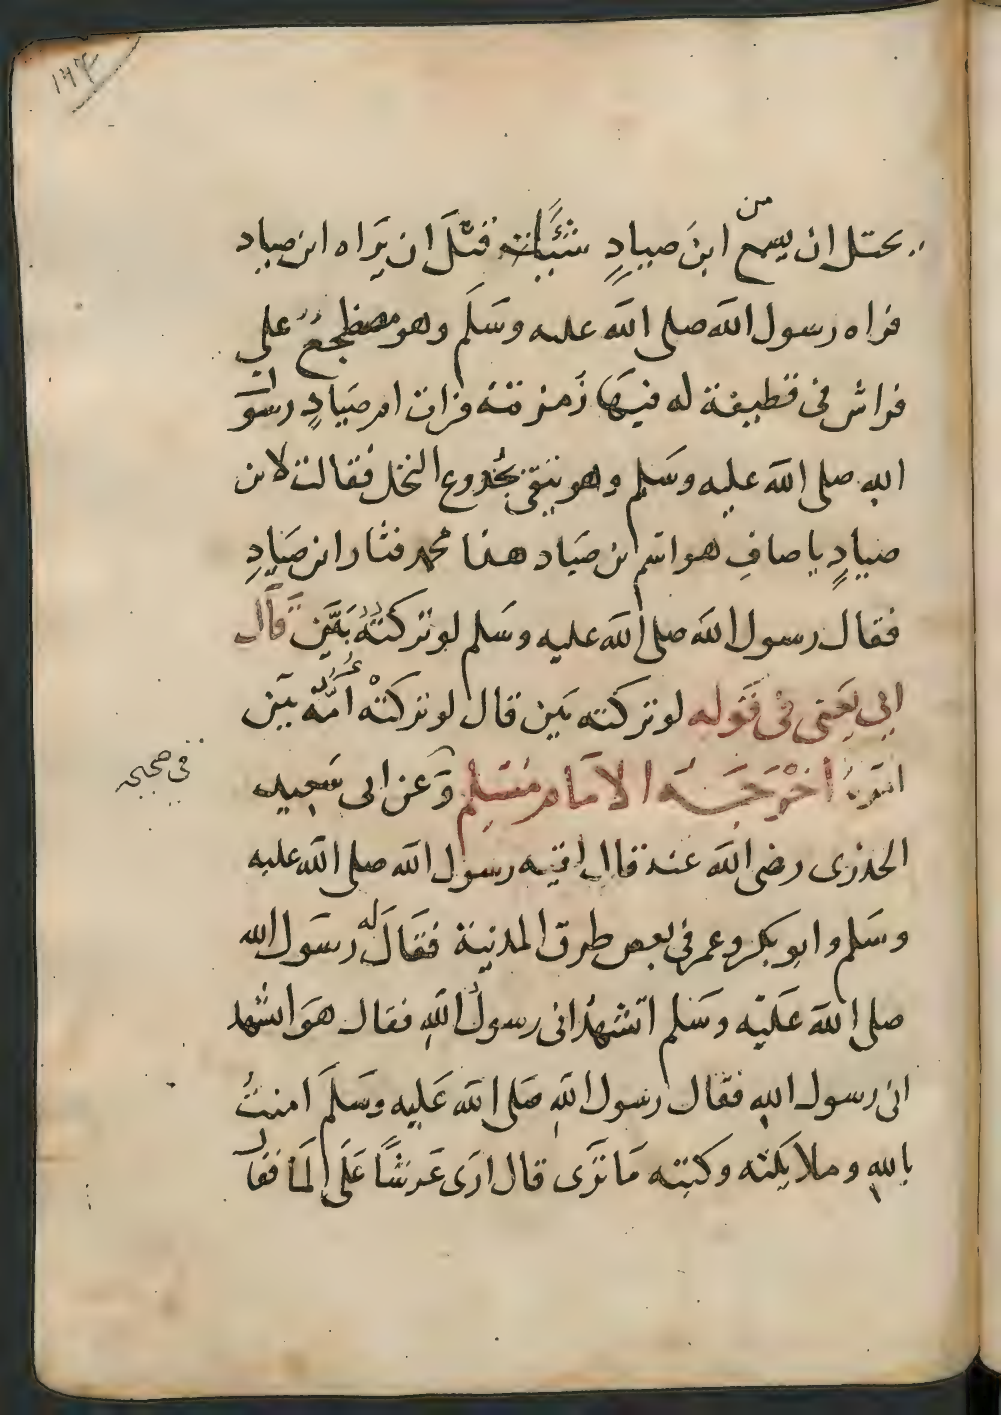 ١٦٣
يختل ان يسمع من ابن صيادٍ شيئا قبل ان يراه ابن صياد
فراه رسول الله صلى الله عليه وسلم وهو مضطجع على
فراش في قطيفة له فيها زمزمة فرات ام صيادٍ رسول
الله صلى الله عليه وسلم وهو يتقي بجُذوع النخل فقالت لابن
صيادٍ يا صافِ هو اسم ابن صياد هذا محمد فثار ابن صيادِ
فقال رسول الله صلى الله عليه وسلم لو تركته بَيَّن قال
ابي يعني في قوله لو تركته بين قال لو تركته امّه بين
امره اخرجه الامام مسلم وعن ابي سعيد
في صحيحه
الخدري رضي الله عنه قال لقيه رسول الله صلى الله عليه
وسلم وابو بكر وعمر في بعض طرق المدينة فقال له رسول الله
صلى الله عليه وسلم اتشهد اني رسول الله فقال هو اتشهد
اني رسول الله فقال رسول الله صلى الله عليه وسلم امنتُ
بالله وملايكته وكتبه ما ترى قال ارى عرشا على الما فقال